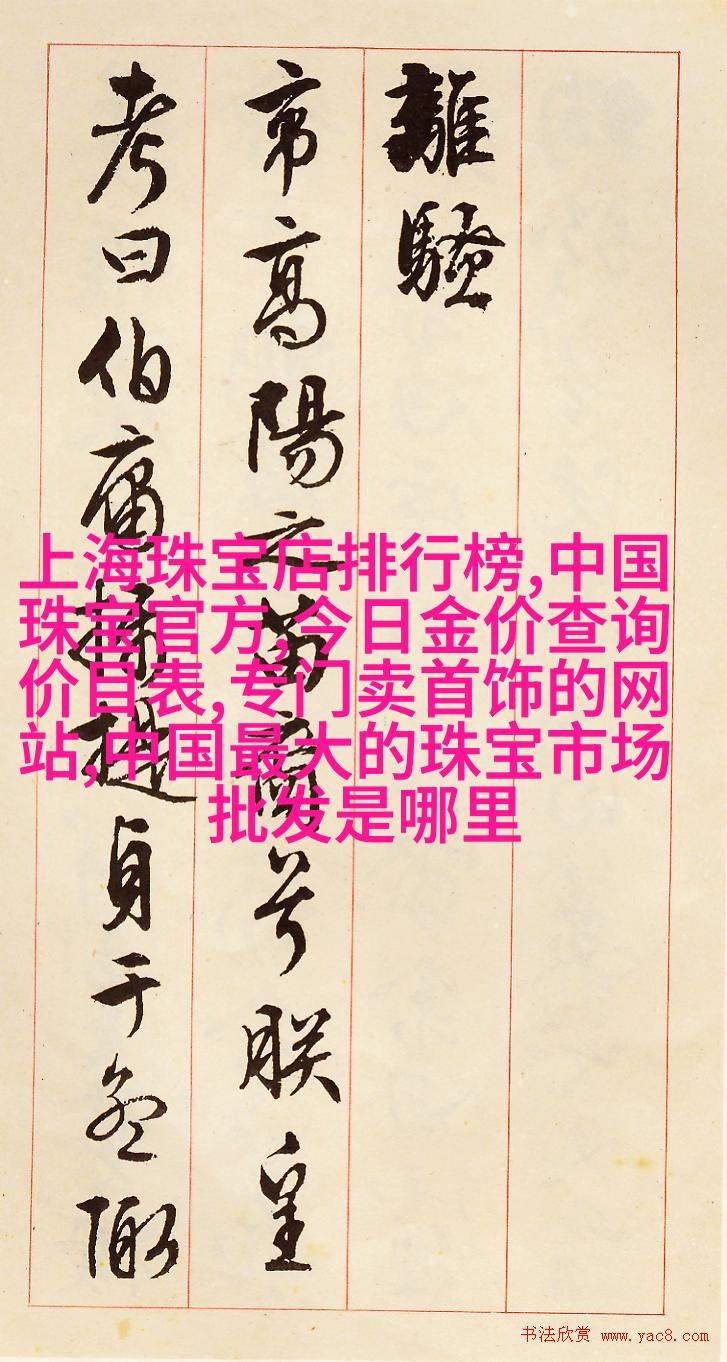 離騷
帝高陽之苗裔兮朕皇
考曰伯庸攝提貞于孟陬
上海珠宝店排行榜,中国
珠宝官方,今日金价查询
价目表,专门卖首饰的网
站,中国最大的珠宝市场
批发是哪里
书法欣赏 www.yac8.com